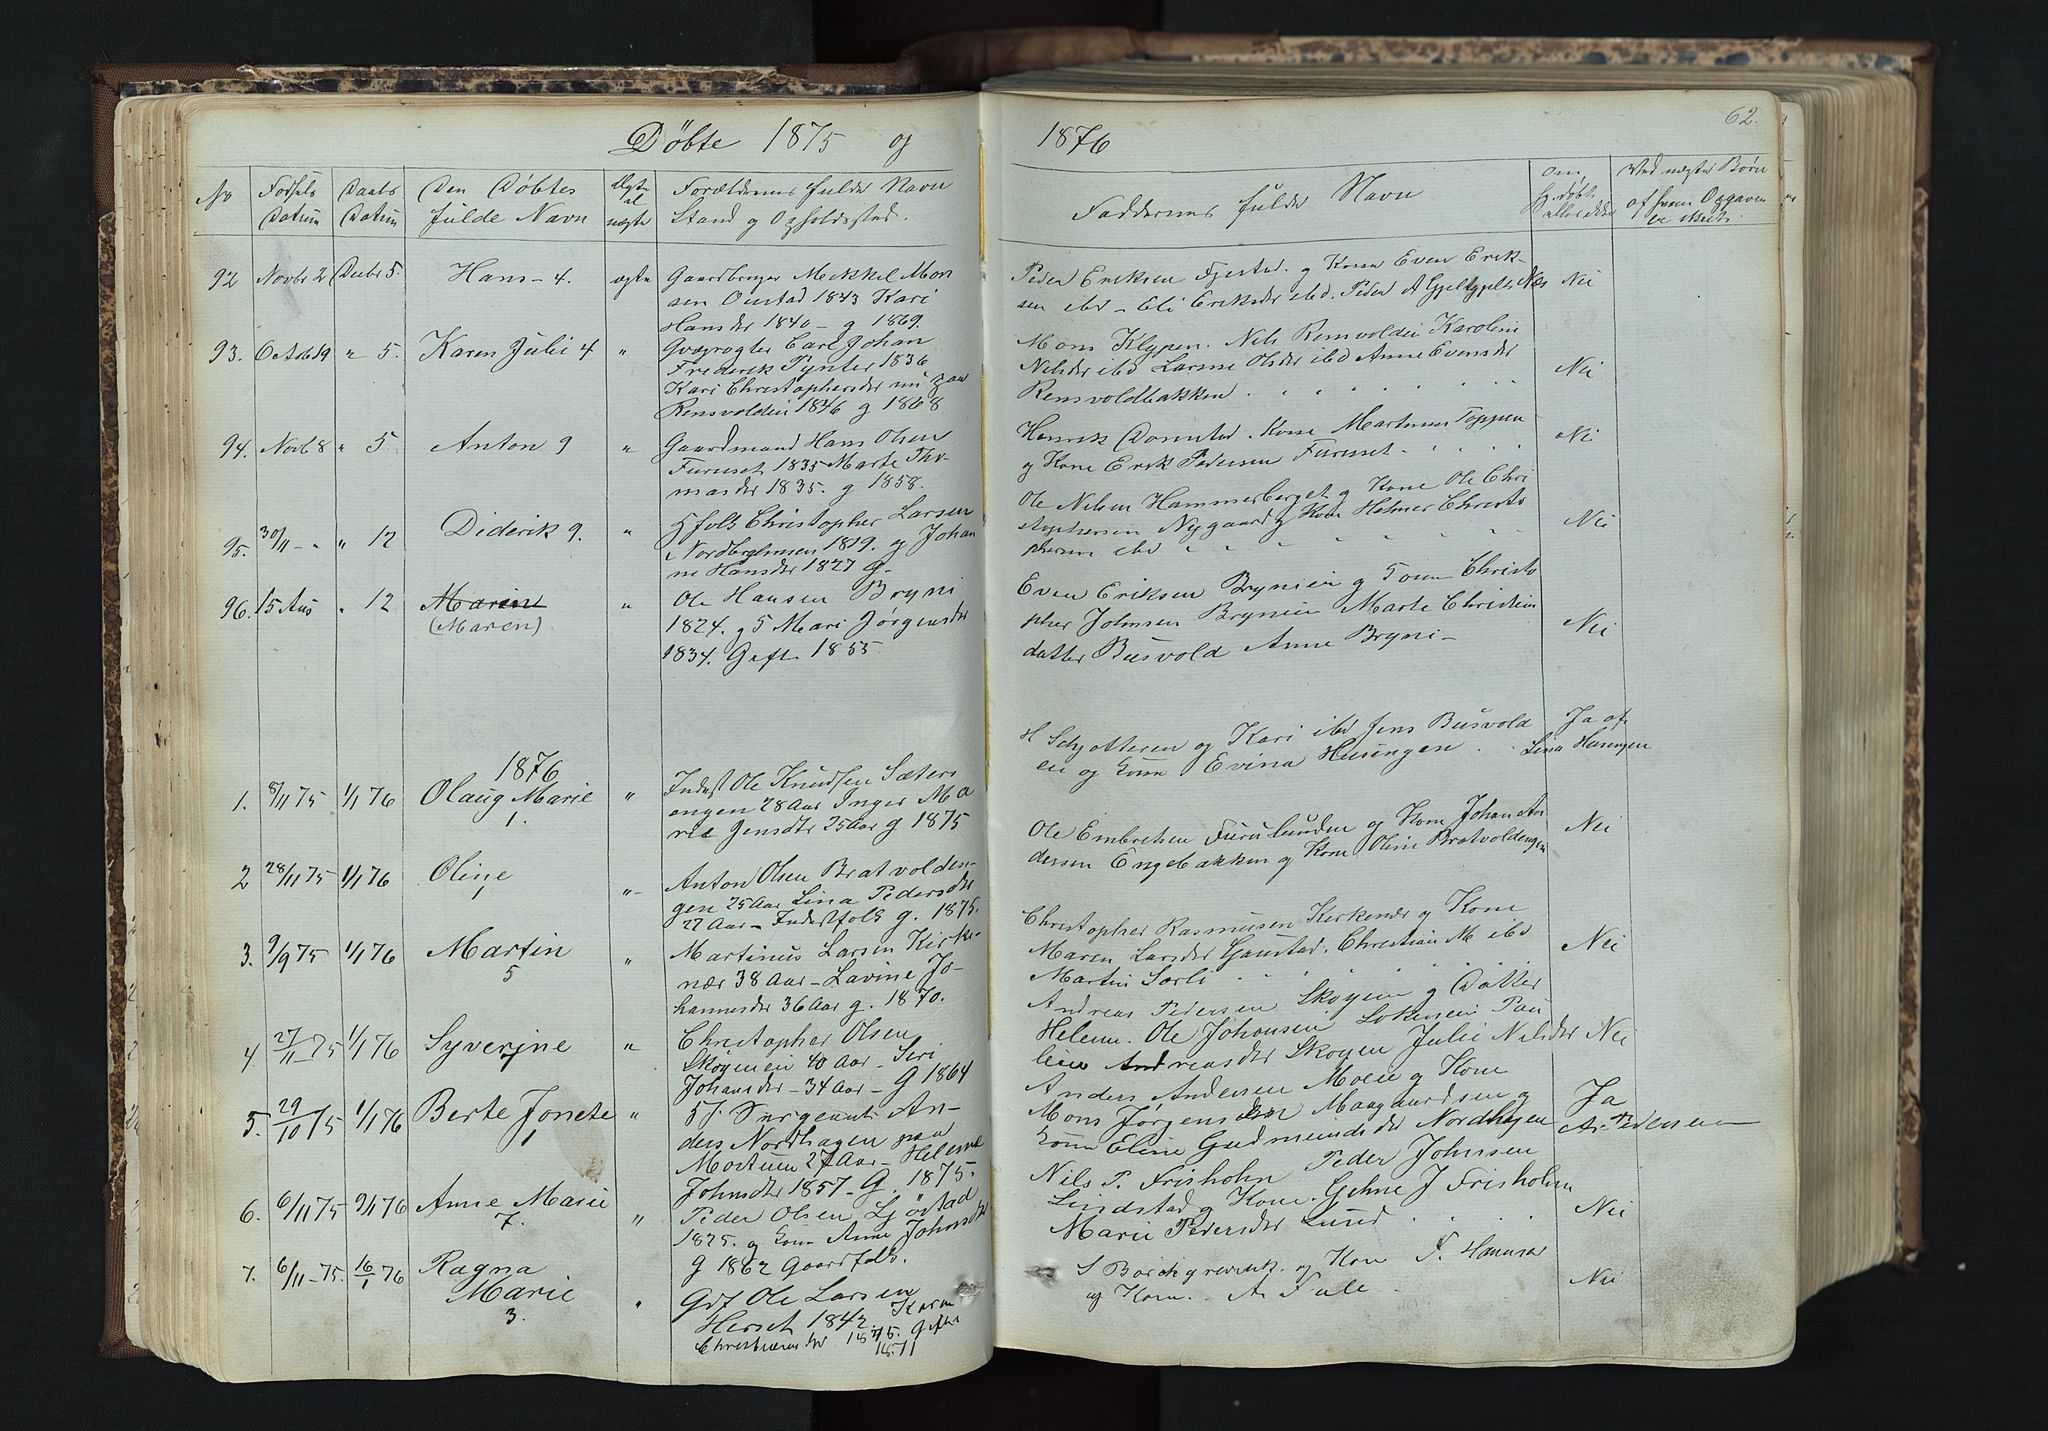 Döbte 1875 og
1876
62.
No
Fødsels Datum
Daabs Datum
Den Döbtes fulde Navn
Ægte el uægte
Forældrenes fulde Navn
Stand og Opholdssted.
Faddernes fulde Navn
om hjdøbt eller ikke
Ved uægte Børn af hvem Opgaven er skeet.
92 Novbr 2 Decbr 5. Hans - 4. ægte Gaardbruger Mikkel Mon
sen Onstad 1843 Kari
Hansdtr 1840 - g 1869.
Peder Eriksen Fjestad. g Kone Even Erik-
sen ibd - Eli Eriksdtr ibd. Peder A Nei
93. Octob 19 " 5. Karen Julie 4 " Carl Johan
Frederik Pynter 1836
Kari Christophersdtr nu paa
Rensvolden 1846 g 1868
Mons Klypen. Nils Rensvolden Karoline
Nilsdtr ibd Larine Olsdtr ibd Anne Evensdtr
Rensvoldbakken . " " " " Nei
94. Novb 8 " 5 Anton 9 " Gaardmand Hans Olsen
Furuset 1835 Marte Tho-
masdtr 1835. g 1858.
Henrik Onstad. Kone Martinus Toppen
og Kone Erik Pedersen Furuset. Nei
95. 30/11 - " " 12 Diderik 9. " Hfolk Christopher Larsen
Nordberghusen 1819. og Johan
ne Hansdtr 1827 G.
Ole Nilsen Hammerberget g Kone Ole Chri
stophersen Nygaard g Kone Helmer Christo
phersen ibd " " " " Nei
96. 15 Aus " 12 Maren
(Maren) " Ole Hansen Bryni
1824. g 5 Mari Jørgensdtr
1834. Gift 1855
Even Eriksen Brynien g Kone Christo
pher Johnsen Brynien Marte Christian
datter Busvold Anne Bryni - Nei
1876
1. 8/11 75 1/1 76 Olaug Marie
1. " Indst Ole Knudsen Sæters
engen 28 Aar Inger Ma
rie Jensdtr 25 Aar g 1875
H Schjotteren og Kari ibd Jens Busvold
en og Kone Evina Husengen . Ja af
Lina Husengen
2 28/11 75 1/1 76 Oline
1 " - Anton Olsen Bratvolden-
gen 25 Aar Lina Pedersdtr
22 Aar - Indstfolk g. 1875.
Ole Embretsen Furulunden og Kone Johan An
dersen Engebakken g Kone Oline Bratvoldengen Nei
3. 9/9 75 1/1 76 Martin
5 " Martinus Larsen Kirke-
nær 38 Aar - Lavine Jo-
hannesdtr 36 Aar g. 1870.
Christopher Rasmussen Kirkenær g Kone
Maren Larsdtr Gaustad. Christian M ibd
Martin Sorli . . . . Nei
4. 27/11 75 1/1 76 Syverine
7 " Christopher Olsen
Skøyenein 40 Aar - Siri
Johansdtr - 34 Aar - G 1864
Andreas Pedersen Skøyen g Datter
Helene. Ole Johansen Løkenein Pau
line Andreasdtr Skøyen Julie Nilsdtr Nei
5. 29/10 75 1/1 76 Berte Jonete
1 " Sergeant An-
ders Nordhagen paa
Mostuen 27 Aar - Helene
Johnsdtr 1857 - G. 1875.
Anders Andersen Moen g Kone
Mons Jørgensen Maagaardsen g
Kone Eline Gudmundsdtr Nordhagen Ja
A. Pedersen
6. 6/11 75 9/1 76 Anne Marie
7. " Peder Olsen Ljöstad
1825. og Kone Anne Johnsdtr
G 1862 Gaardfolk.
Nils P. Frisholm Peder Johnsen
Lindstad g Kone. Gehne J Frisholm
Marie Pedersdtr Lund . . . Nei
7. 6/11 - 75. 16/1 76 Ragna
Marie
3. " Gdf Ole Larsen
Herset 1842. Karen
1845. Gifte
1871
S Borchgrevink. og Kone T. Hansen
og Kone. A. Fale - Nei